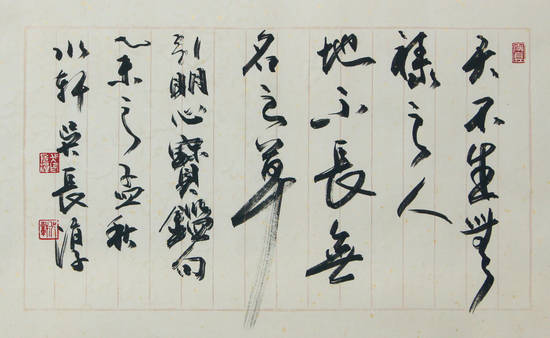 天不生無
祿之人
地不長無
名之草
引明心寶鑑句
乙未之孟秋
小軒吳長淳